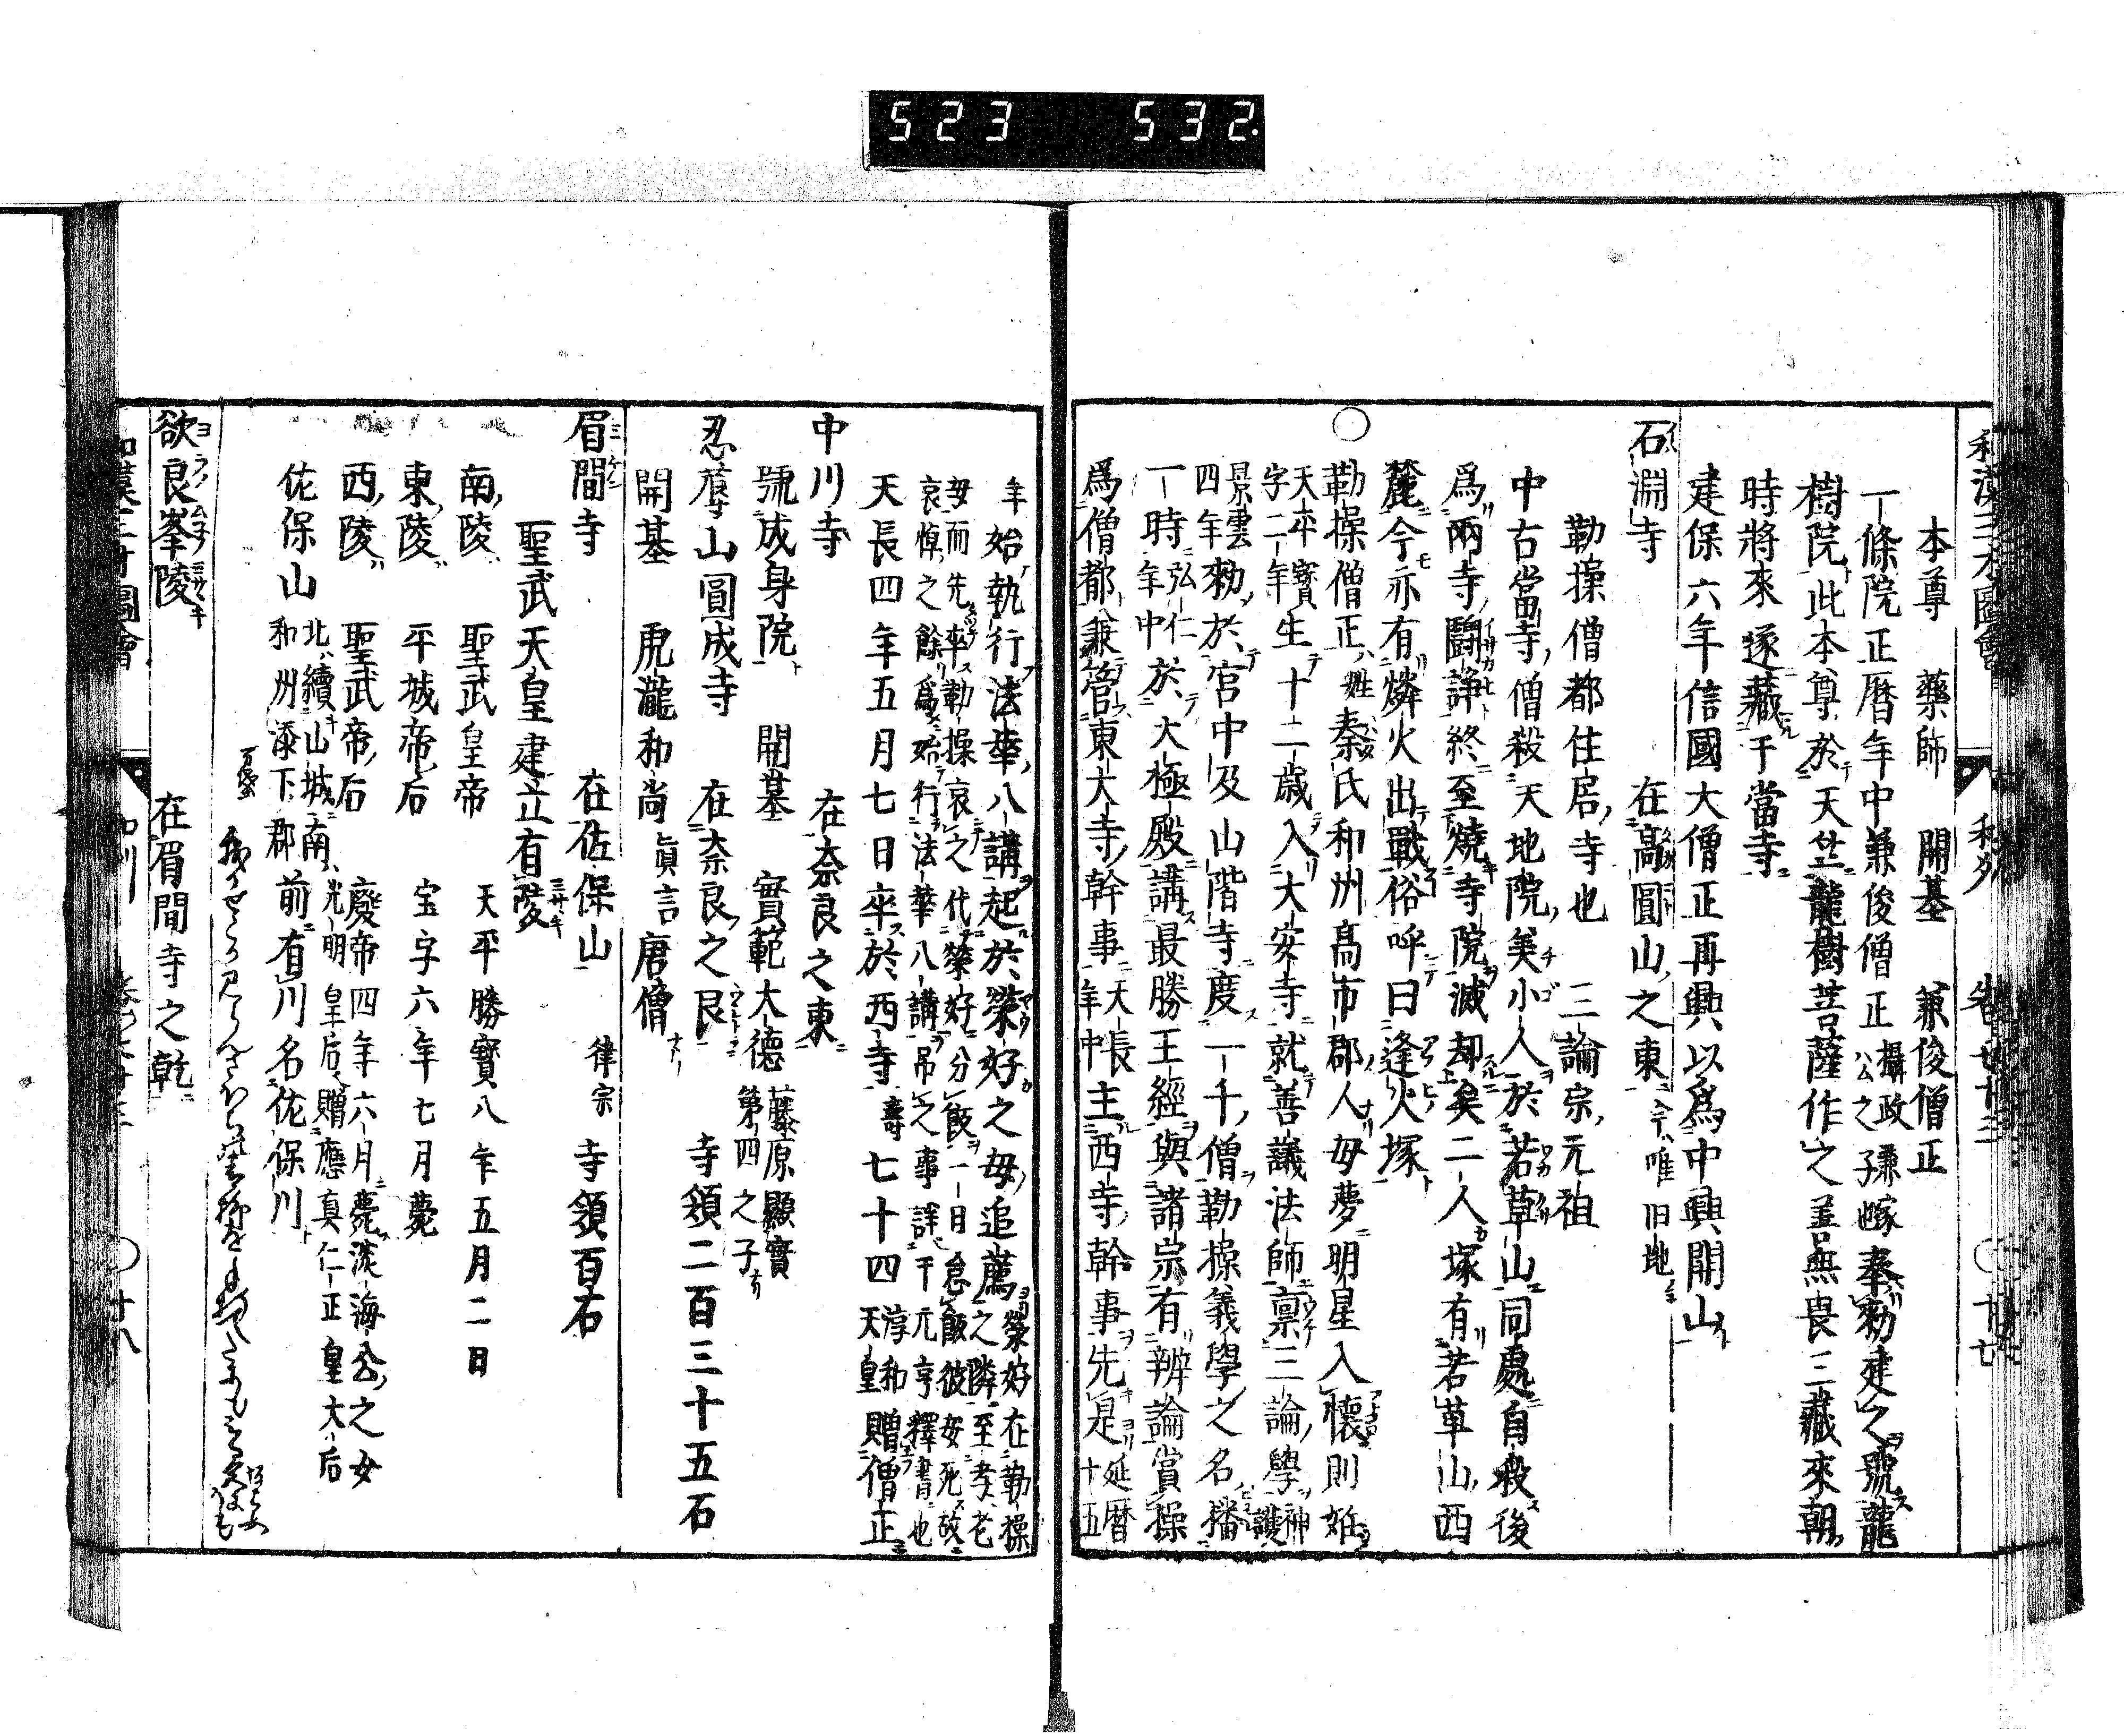 523 532
本尊　藥師　開基　兼俊僧正
一條院正暦年中兼俊僧正攝政兼家公之子奉勅建之號龍
樹院此本尊於天竺龍樹菩薩作之善無畏三藏來朝
時將來遂藏于當寺
建保六年信國大僧正再興以爲中興開山
石淵寺　在高圓山之東今唯旧地
勤操僧都住居寺也　三論宗元祖
中古當寺僧殺天地院美小人於若草山同處自殺後
爲兩寺鬪諍終至燒寺院滅却矣二人塚有若草山西
麓今亦有燐火出戰俗呼曰逢火塚
○勤操僧正姓秦氏和州高市郡人母夢明星入懷則娠
天平寶字二年生十二歳入大安寺就善議法師禀三論學神護
景雲四年勅於宮中及山階寺度一千僧勤操義學之名播
一時弘仁年中於大極殿講最勝王經與諸宗有辨論賞操
爲僧都兼管東大寺幹事天長年中主西寺幹事先是延暦十五
年始執行法華八講起於榮好之母追薦榮好在勤操之隣至孝老
母而先卒勤操哀之代榮好分飯一日怠飯彼母死故
哀悼之餘爲始行法華八講吊之事詳于元亨釋書也
天長四年五月七日卒於西寺壽七十四淳和天皇贈僧正
中川寺　在奈良之東
號成身院　開基　實範大德藤原顯實第四之子
忍辱山圓成寺　在奈良之艮　寺領二百三十五石
開基　虎瀧和尚　眞言　唐僧
眉間寺　在佐保山　律宗　寺領百石
聖武天皇建立有陵
南陵　聖武皇帝　天平勝寶八年五月二日
東陵　平城帝后　宝字六年七月薨
西陵　聖武帝后　廢帝四年六月薨淡海公之女
光明皇后贈應真仁正皇大后
佐保山　北續山城南　和州添下郡　前有川名佐保川
欲良峯陵　在眉間寺之乾